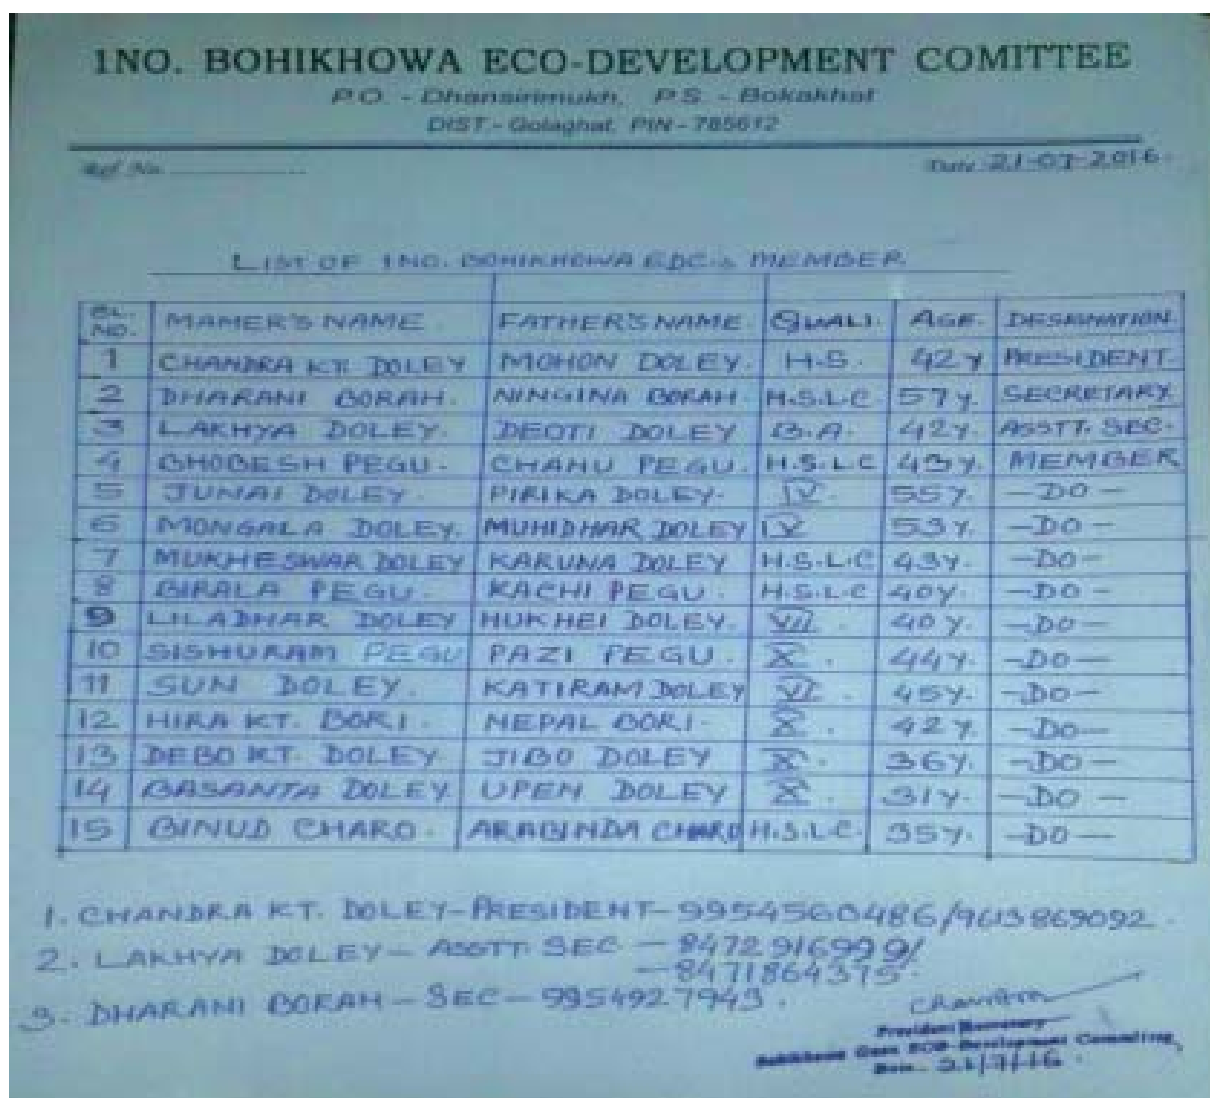 1NO. BOHIKHOWA ECO-DEVELOPMENT COMITTEE
P.O. - Dhansirimukh, P.S. - Bokakhat
DIST.- Golaghat, PIN - 785612
Ref. No. Date 21-07-2016.
LIST OF 1NO. BOHIKHOWA EDC.s MEMBER.
SL. NO. MAMER'S NAME FATHER'S NAME. QUALI. AGE. DESIGNATION.
1 CHANDRA KT. DOLEY MOHON DOLEY. H.S. 42y PRESIDENT.
2 DHARANI BORAH. NINGINA BORAH. H.S.L.C 57y. SECRETARY
3 LAKHYA DOLEY. DEOTI DOLEY B.A. 42y. ASSTT. SEC.
4 BHOBESH PEGU. CHANU PEGU. H.S.L.C 43y. MEMBER
5 JUNAI DOLEY. PIRIKA DOLEY. IV. 55y. -DO-
6 MONGALA DOLEY. MUHIDHAR DOLEY IV 53y. -DO-
7 MUKHESWAR DOLEY KARUNA DOLEY H.S.L.C 43y. -DO-
8 BIRALA PEGU. KACHI PEGU. H.S.L.C 40y. -DO-
9 LILADHAR DOLEY HUKHEI DOLEY. VII. 40y. -DO-
10 SISHURAM PEGU PAZI PEGU. X. 44y. -DO-
11 SUN DOLEY. KATIRAM DOLEY VI. 45y. -DO-
12 HIRA KT. BORI. NEPAL BORI. X. 42y. -DO-
13 DEBO KT. DOLEY JIBO DOLEY X. 36y. -DO-
14 BASANTA DOLEY. UPEN DOLEY X. 31y. -DO-
15 BINUD CHARO. ARABINDA CHARO H.S.L.C. 35y. -DO-
1. CHANDRA KT. DOLEY-PRESIDENT-9954560486/9613869092.
2. LAKHYA DOLEY- ASSTT. SEC - 8472916999/
- 8471864375.
3. DHARANI BORAH - SEC - 9954927943.
President/Secretary
Bohikhowa Gaon ECO-Development Committee,
Date 21/7/16.